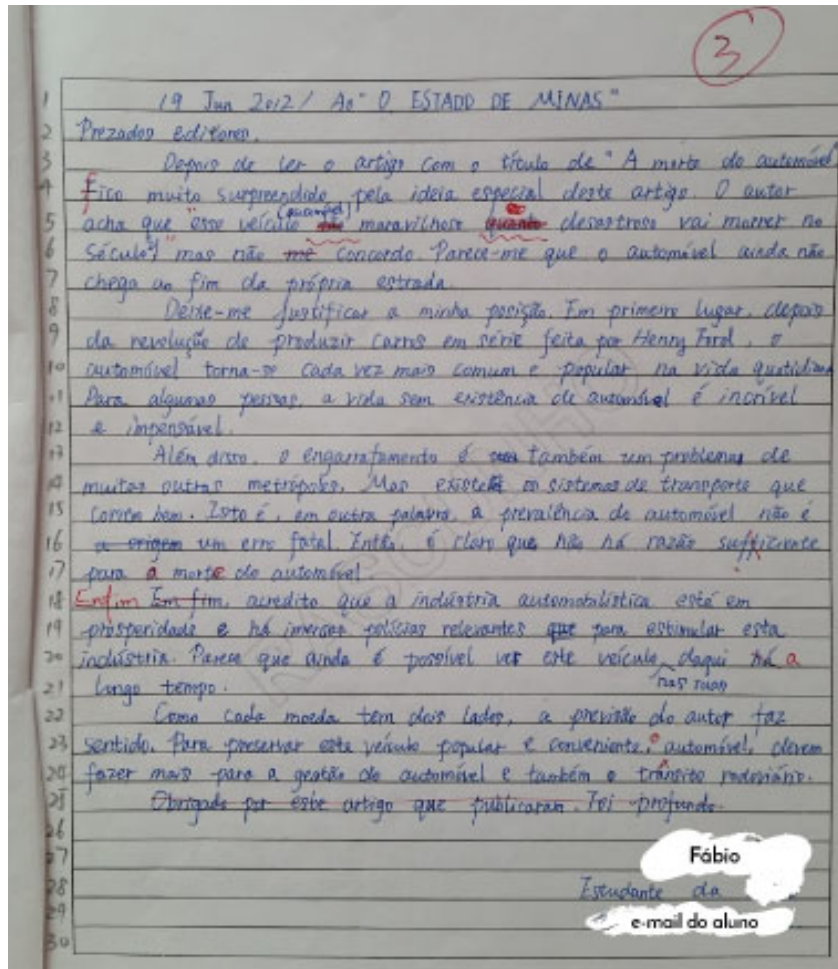 3
1 19 Jun 2012 / Ao "O ESTADO DE MINAS"
2 Prezados editores,
3 Depois de ler o artigo com o título de "A morte do automóvel"
4 fico muito surpreendido pela ideia especial deste artigo. O autor
5 acha que "esse veículo maravilhoso desastroso vai morrer no
6 século" mas não me concordo. Parece-me que o automóvel ainda não
7 chega ao fim da própria estrada.
8 Deixe-me justificar a minha posição. Em primeiro lugar, depois
9 da revolução de produzir carros em série feita por Henry Ford, o
10 automóvel torna-se cada vez mais comum e popular na vida quotidiana
11 Para algumas pessoas, a vida sem existência de automóvel é incrível
12 e impensável.
13 Além disso, o engarrafamento é também um problema de
14 muitas outras metrópoles. Mas existem os sistemas de transporte que
15 correm bem. Isto é, em outra palavra, a prevalência do automóvel não é
16 a origem um erro fatal. Então, é claro que não há razão
17 para a morte do automóvel.
18 Enfim Em fim, acredito que a indústria automobilística está em
19 prosperidade e há imersas polícias relevantes que para estimular esta
20 indústria. Parece que ainda é possível ver este veículo daqui há a
nas ruas
21 longo tempo.
22 Como cada moeda tem dois lados, a previsão do autor faz
23 sentido. Para preservar este veículo popular e conveniente, o automóvel, devem
24 fazer mais para a gestão do automóvel e também o trânsito rodoviário.
25 Obrigado por este artigo que publicaram. Foi profundo.
26
27 Fábio
28 Estudante da
29 e-mail do aluno
30